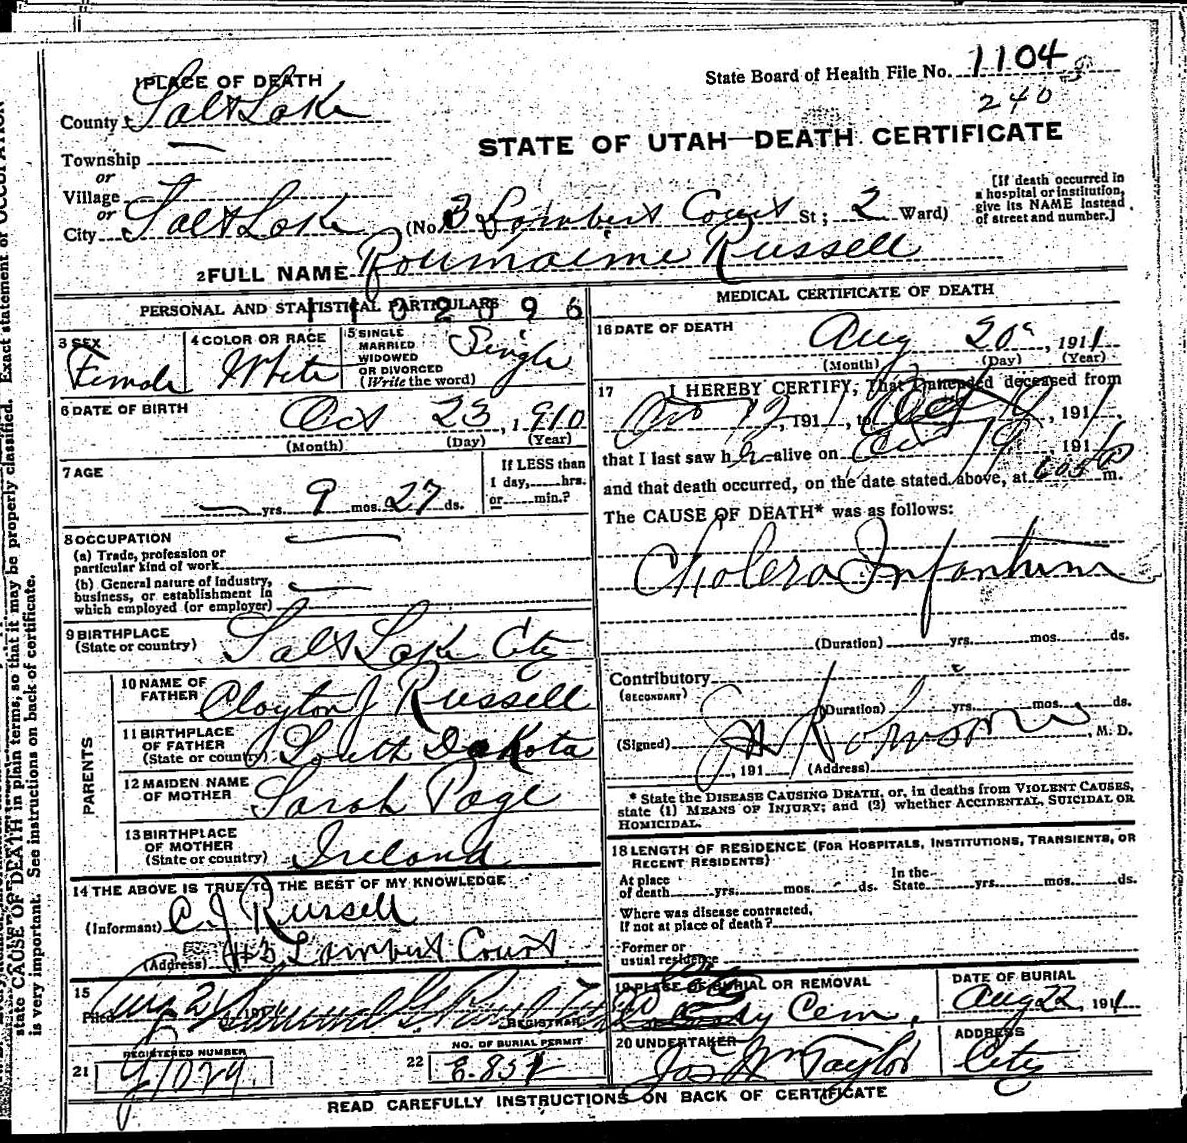 1 PLACE OF DEATH
State Board of Health File No. 1104
240
County Salt Lake
STATE OF UTAH—DEATH CERTIFICATE
Township —
or
Village
or
City Salt Lake (No. 3 Lambert Court St; 2 Ward)
[If death occurred in
a hospital or institution,
give its NAME instead
of street and number.]
2 FULL NAME Roumaime Russell
PERSONAL AND STATISTICAL PARTICULARS
1102096
3 SEX
Female
4 COLOR OR RACE
White
5 SINGLE
MARRIED
WIDOWED
OR DIVORCED
(Write the word)
Single
6 DATE OF BIRTH
Oct 23, 1910
(Month) (Day) (Year)
7 AGE
— yrs. 9 mos. 27 ds.
If LESS than
1 day, hrs.
or min.?
8 OCCUPATION —
(a) Trade, profession or
particular kind of work
(b) General nature of industry,
business, or establishment in
which employed (or employer) —
9 BIRTHPLACE
(State or country) Salt Lake City
PARENTS
10 NAME OF
FATHER Clayton J Russell
11 BIRTHPLACE
OF FATHER
(State or country) South Dakota
12 MAIDEN NAME
OF MOTHER Sarah Page
13 BIRTHPLACE
OF MOTHER
(State or country) Ireland
14 THE ABOVE IS TRUE TO THE BEST OF MY KNOWLEDGE
(Informant) C J Russell
(Address) #3 Lambert Court
15
Filed Aug 21 191
REGISTRAR
21 REGISTERED NUMBER
22 NO. OF BURIAL PERMIT
MEDICAL CERTIFICATE OF DEATH
16 DATE OF DEATH
Aug 20, 1911
(Month) (Day) (Year)
17 I HEREBY CERTIFY, That I attended deceased from
12, 1911, to 19, 191
that I last saw h alive on 19, 191
and that death occurred, on the date stated above, at m.
The CAUSE OF DEATH* was as follows:
Cholera Infantum
(Duration) yrs. mos. ds.
Contributory
(SECONDARY)
(Duration) yrs. mos. ds.
(Signed) , M. D.
, 191 (Address)
* State the DISEASE CAUSING DEATH, or, in deaths from VIOLENT CAUSES,
state (1) MEANS OF INJURY; and (2) whether ACCIDENTAL, SUICIDAL OR
HOMICIDAL.
18 LENGTH OF RESIDENCE (FOR HOSPITALS, INSTITUTIONS, TRANSIENTS, OR
RECENT RESIDENTS)
At place
of death yrs. mos. ds.
In the
State yrs. mos. ds.
Where was disease contracted,
if not at place of death?
Former or
usual residence
19 PLACE OF BURIAL OR REMOVAL
City Cem.
DATE OF BURIAL
Aug 22, 1911
20 UNDERTAKER
Jos Wm Taylor
ADDRESS
City
READ CAREFULLY INSTRUCTIONS ON BACK OF CERTIFICATE
state CAUSE OF DEATH in plain terms, so that it may be properly classified. Exact statement of OCCUPATION
is very important. See instructions on back of certificate.